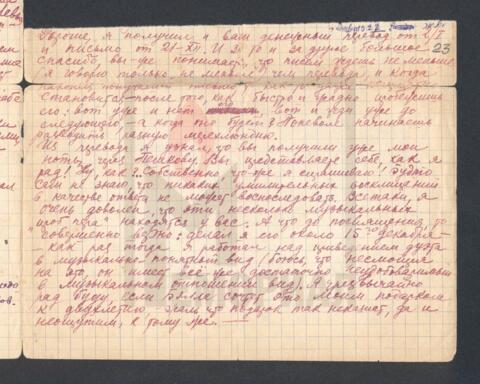 Дорогие, я получил и ваш денежный перевод от 2/I
и письмо от 21-XII. И за то и за другое большое 23
спасибо, вы уже понимаете, что писем ждешь не меньше
(я говорю только не меньше) чем перевода, и когда
получаешь письмо
становится — после того, как быстро и жадно
его: вот уже и нет. Вот и жди уже
следующего, а когда то будет? Поневоле начинаешь
разводить разную мерехлюндию.
Из перевода я узнал, что вы получили уже мои
ноты через Пешкову. Вы представляете себе, как я
рад! Ну, как? Собственно, что уж я спрашиваю! Будто
сам не знаю, что никаких восклицаний
в качестве ответа не может воспоследовать. Все-таки, я
очень доволен, что эти несколько музыкальных
находятся у вас. А что до посвящения, то
совершенно верно: делал его около 15-го декабря —
— как раз тогда я работал над приведением дуэта
в музыкально понятный вид (боюсь, что несмотря
на это, он имеет всё уже достаточно неудобоваримый
в музыкальном отношении вид). Я чрезвычайно
рад буду, если Ляля сочтет это моим подарком
к двухлетию. Знаю, что подарок так неказист, да и
неощутим, к тому же.